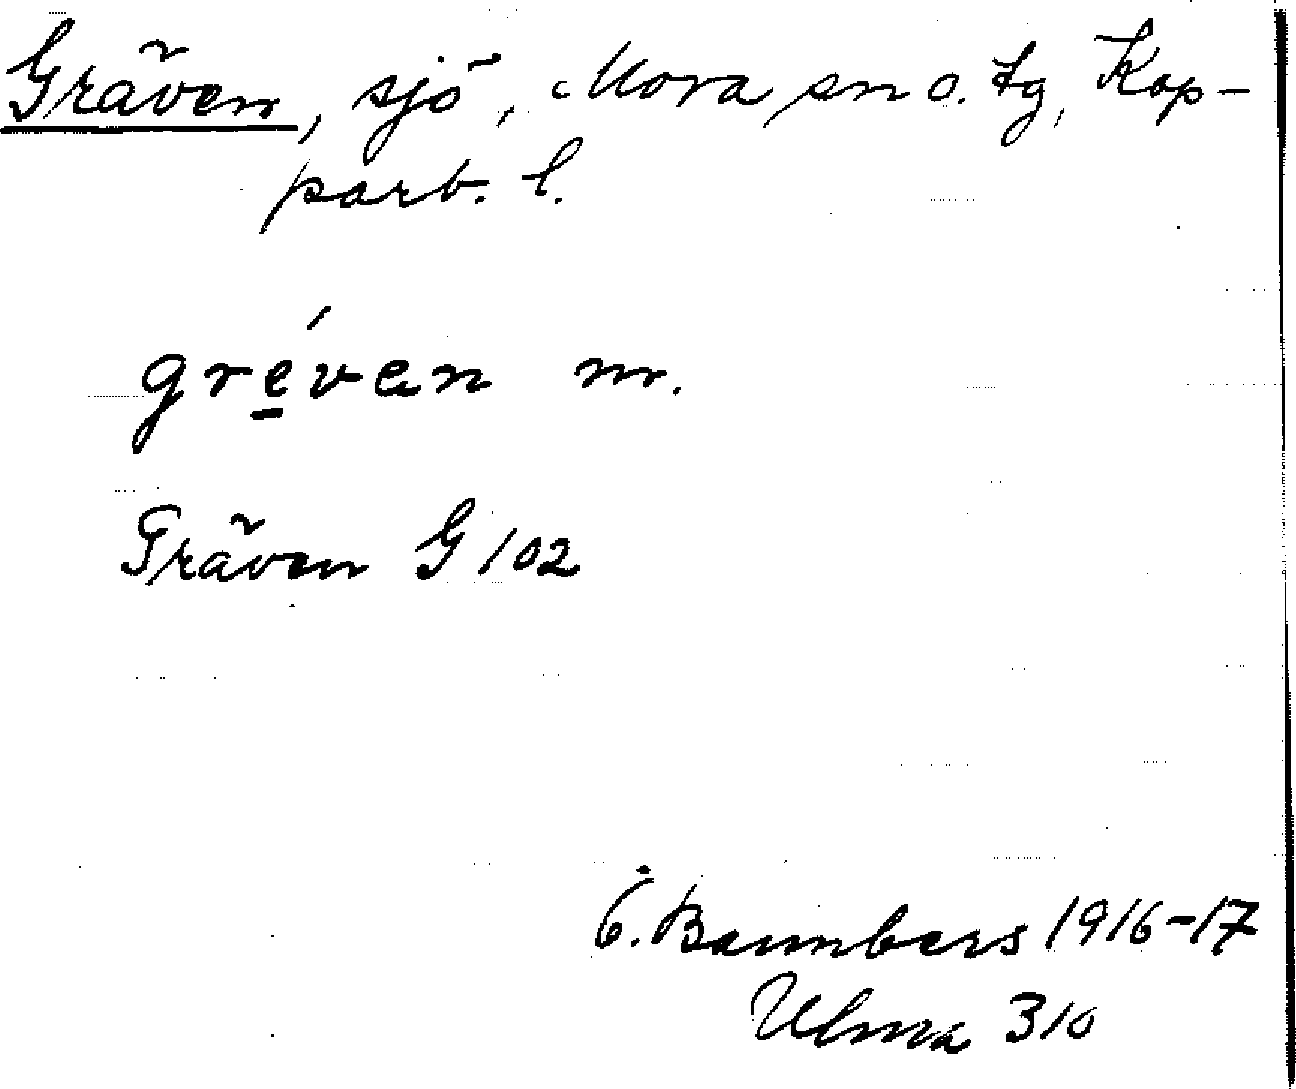 Gräven, sjö, Mora sn o. tg, Kop-
parb. l.
gréven m.
Gräven G 102
Ö. Baumbers 1916-17
Ulma 310